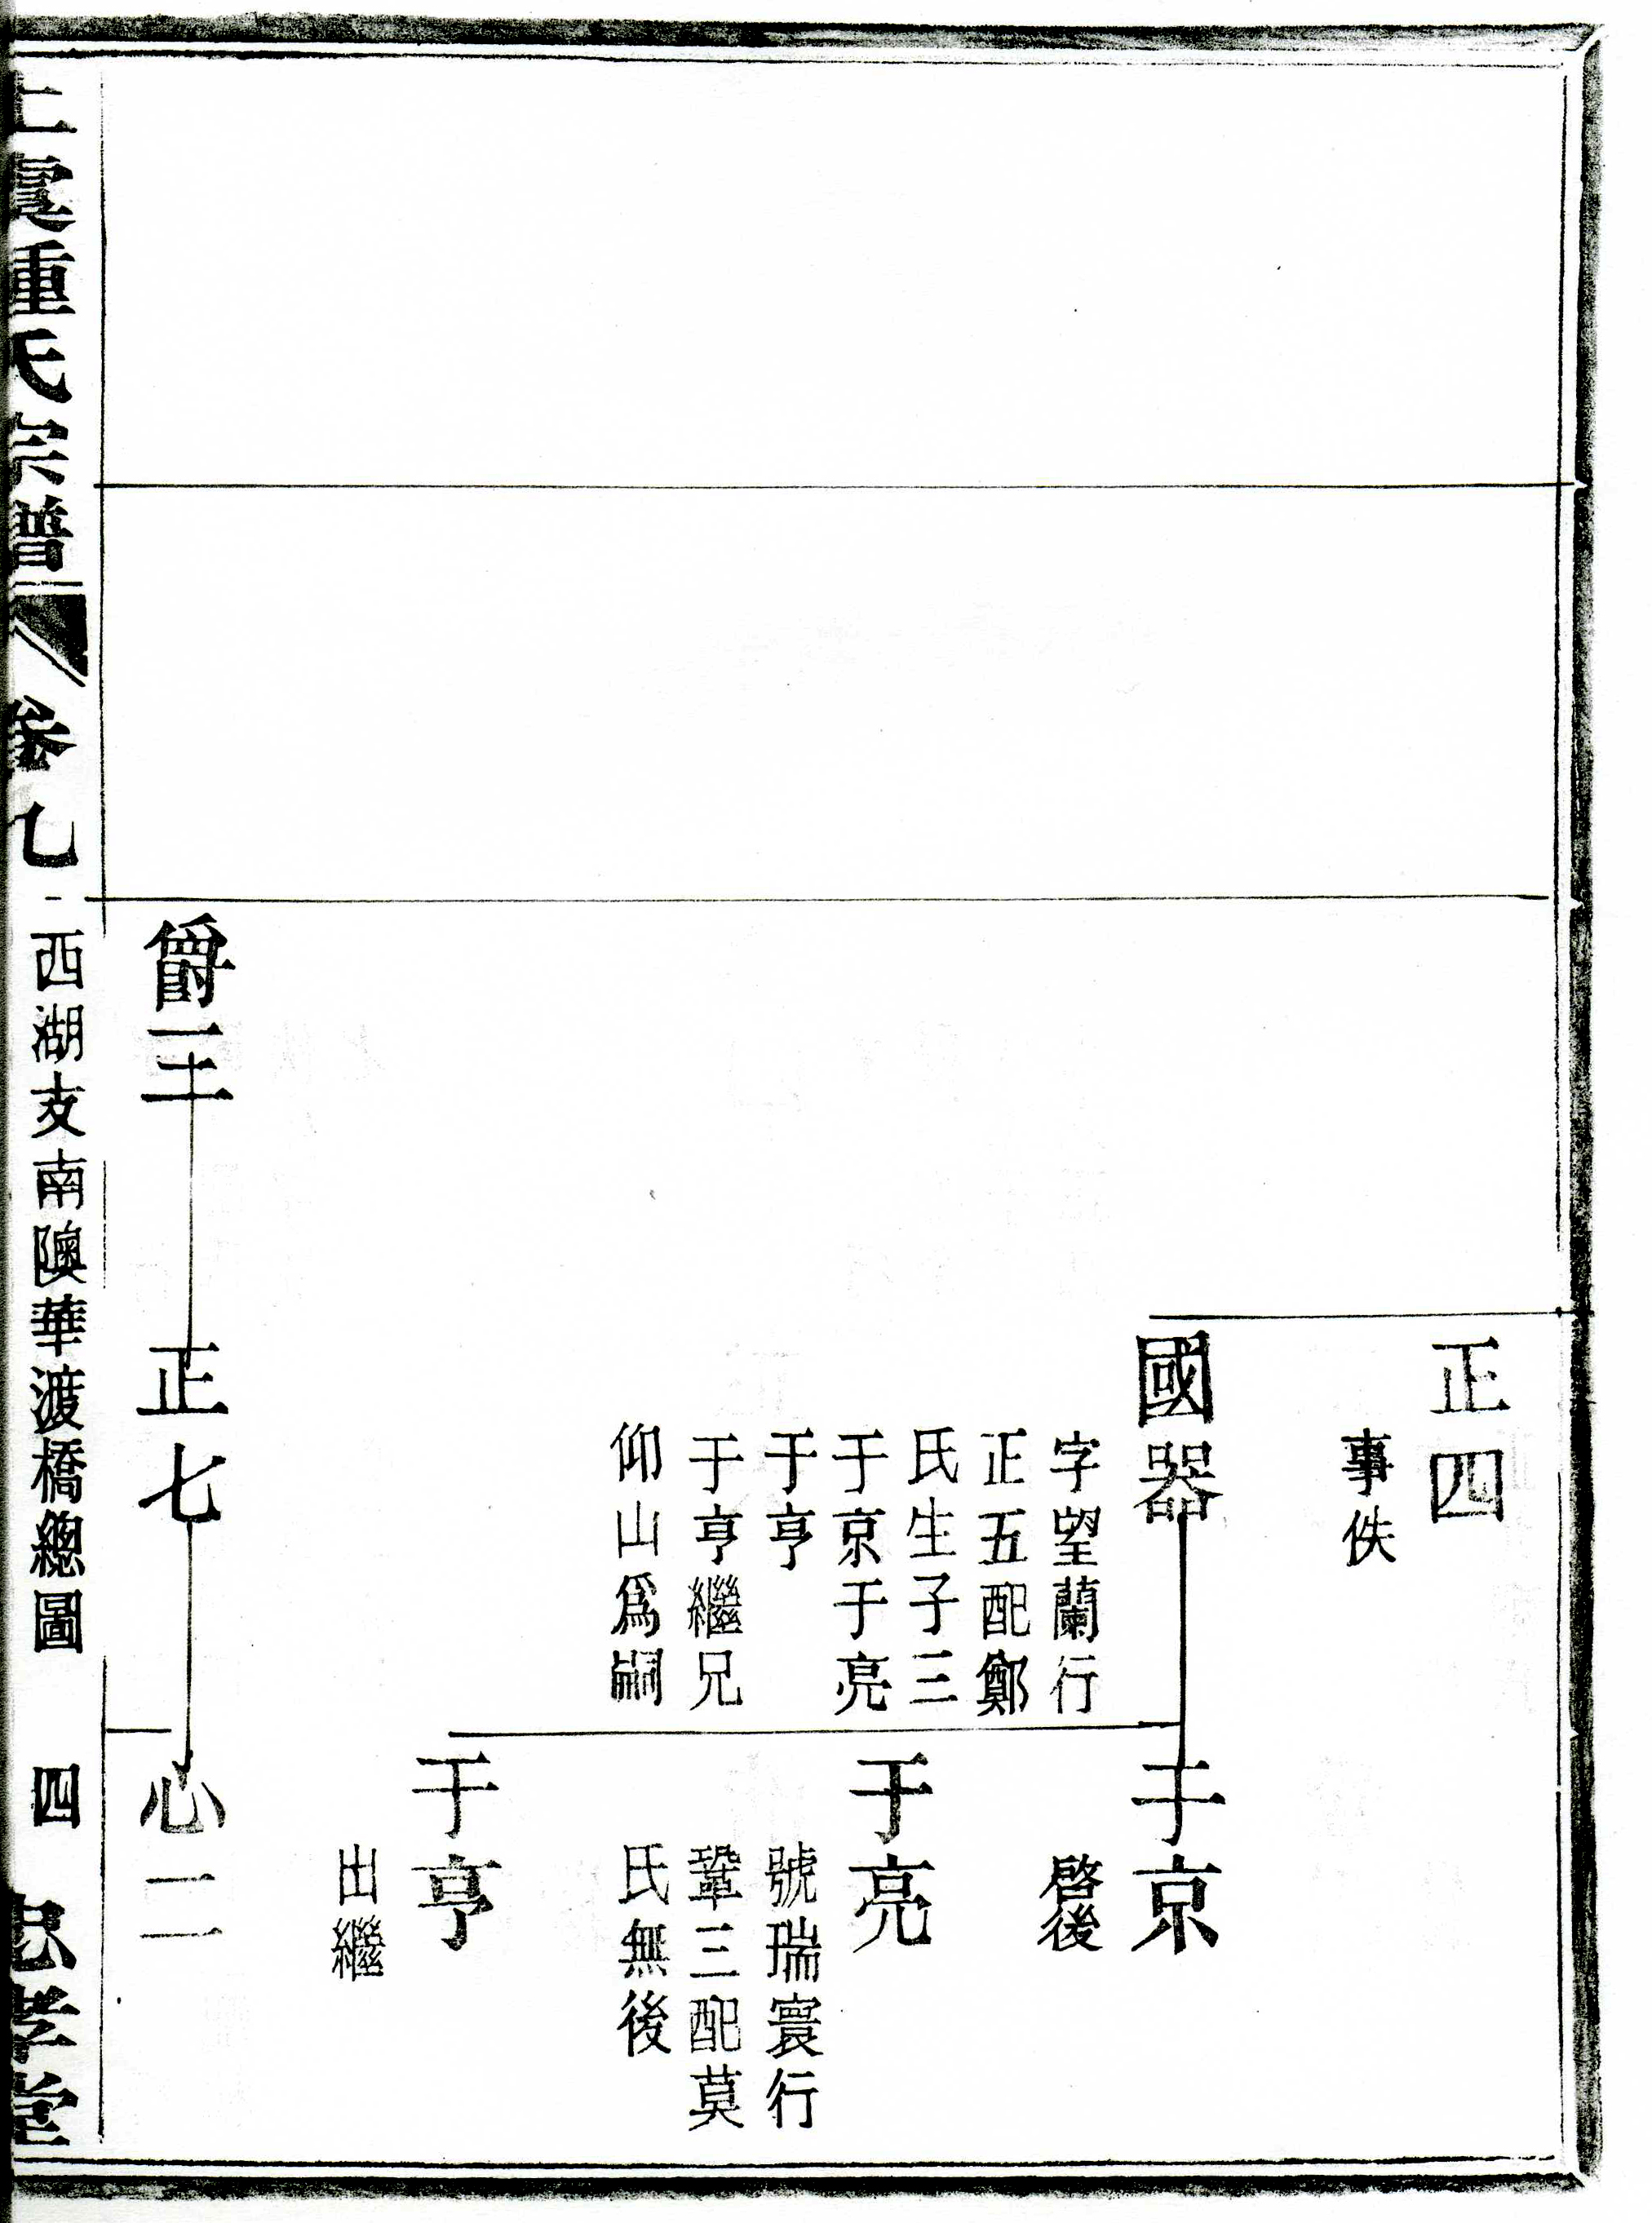 正四
事佚
國器
字望蘭行
正五配鄭
氏生子三
于京于亮
于亨
于亨繼兄
仰山爲嗣
于京
啓後
于亮
號瑞寰行
鞏三配莫
氏無後
于亨
出繼
爵三
正七
心二
上虞鍾氏宗譜
卷七
西湖支南隩華渡橋總圖
四
忠孝堂